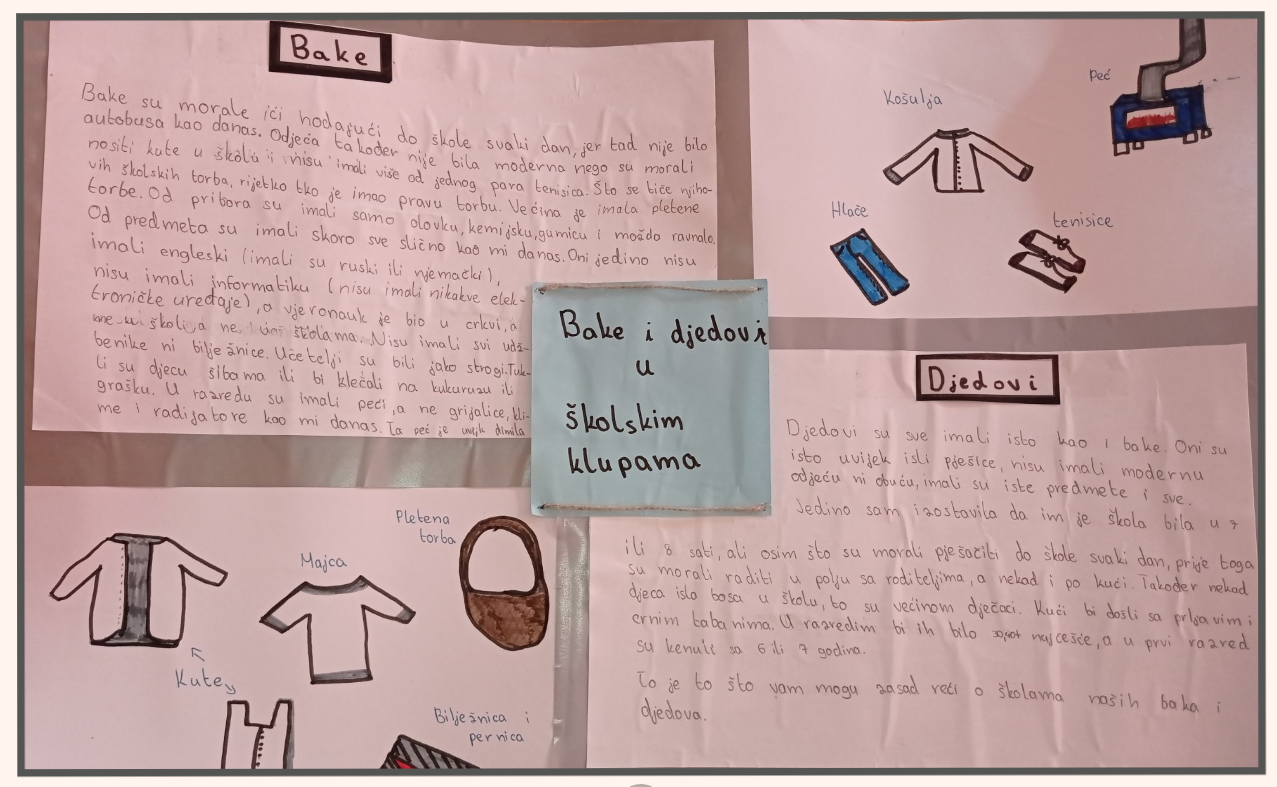 Bake
Bake su morale ići hodajući do škole svaki dan, jer tad nije bilo
autobusa kao danas. Odjeća također nije bila moderna nego su morali
nositi kute u školu i nisu imali više od jednog para tenisica. Što se tiče njiho-
vih školskih torba, rijetko tko je imao pravu torbu. Većina je imala pletene
torbe. Od pribora su imali samo olovku, kemijsku, gumicu i možda ravnalo.
Od predmeta su imali skoro sve slično kao mi danas. Oni jedino nisu
imali engleski (imali su ruski ili njemački),
nisu imali informatiku (nisu imali nikakve elek-
troničke uređaje), a vjeronauk je bio u crkvi, a
školi, a ne školama. Nisu imali svi udž-
benike ni bilježnice. Učetelji su bili jako strogi. Tuk-
li su djecu šibama ili bi klečali na kukuruzu ili
grašku. U razredu su imali peći, a ne grijalice, kli-
me i radijatore kao mi danas. Ta peć je uvijk dimila
Košulja
Peć
Hlače
tenisice
Bake i djedovi
u
školskim
klupama
Djedovi
Djedovi su sve imali isto kao i bake. Oni su
isto uvijek išli pješice, nisu imali modernu
odjeću ni obuću, imali su iste predmete i sve.
Jedino sam izostavila da im je škola bila u 7
ili 8 sati, ali osim što su morali pješačiti do škole svaki dan, prije toga
su morali raditi u polju sa roditeljima, a nekad i po kući. Također nekad
djeca išla bosa u školu, to su većinom dječaci. Kući bi došli sa prljavim i
crnim tabanima. U razredim bi ih bilo najčešće, a u prvi razred
su krenuli sa 6 ili 7 godina.
To je to što vam mogu zasad reći o školama naših baka i
djedova.
Pletena
torba
Majca
Kute
Bilježnica i
pernica